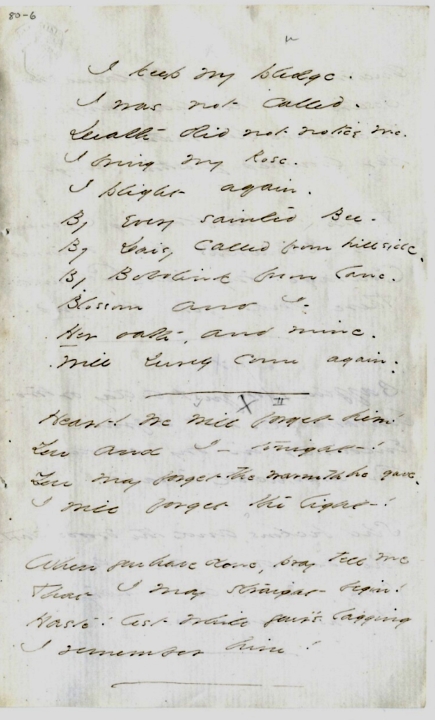 80-6
I keep my pledge.
I was not called.
Death did not notice me.
I bring my Rose.
I plight again.
By every sainted Bee.
By Daisy called from hillside.
By Bobolink from lane.
Blossom and I.
Her oath, and mine.
Will surely come again.
X II
Heart! We will forget him!
You and I - tonight!
You may forget the warmth he gave.
I will forget the light!
When you have done, pray tell me
That I may straight begin!
Haste! lest while you're lagging
I remember him!